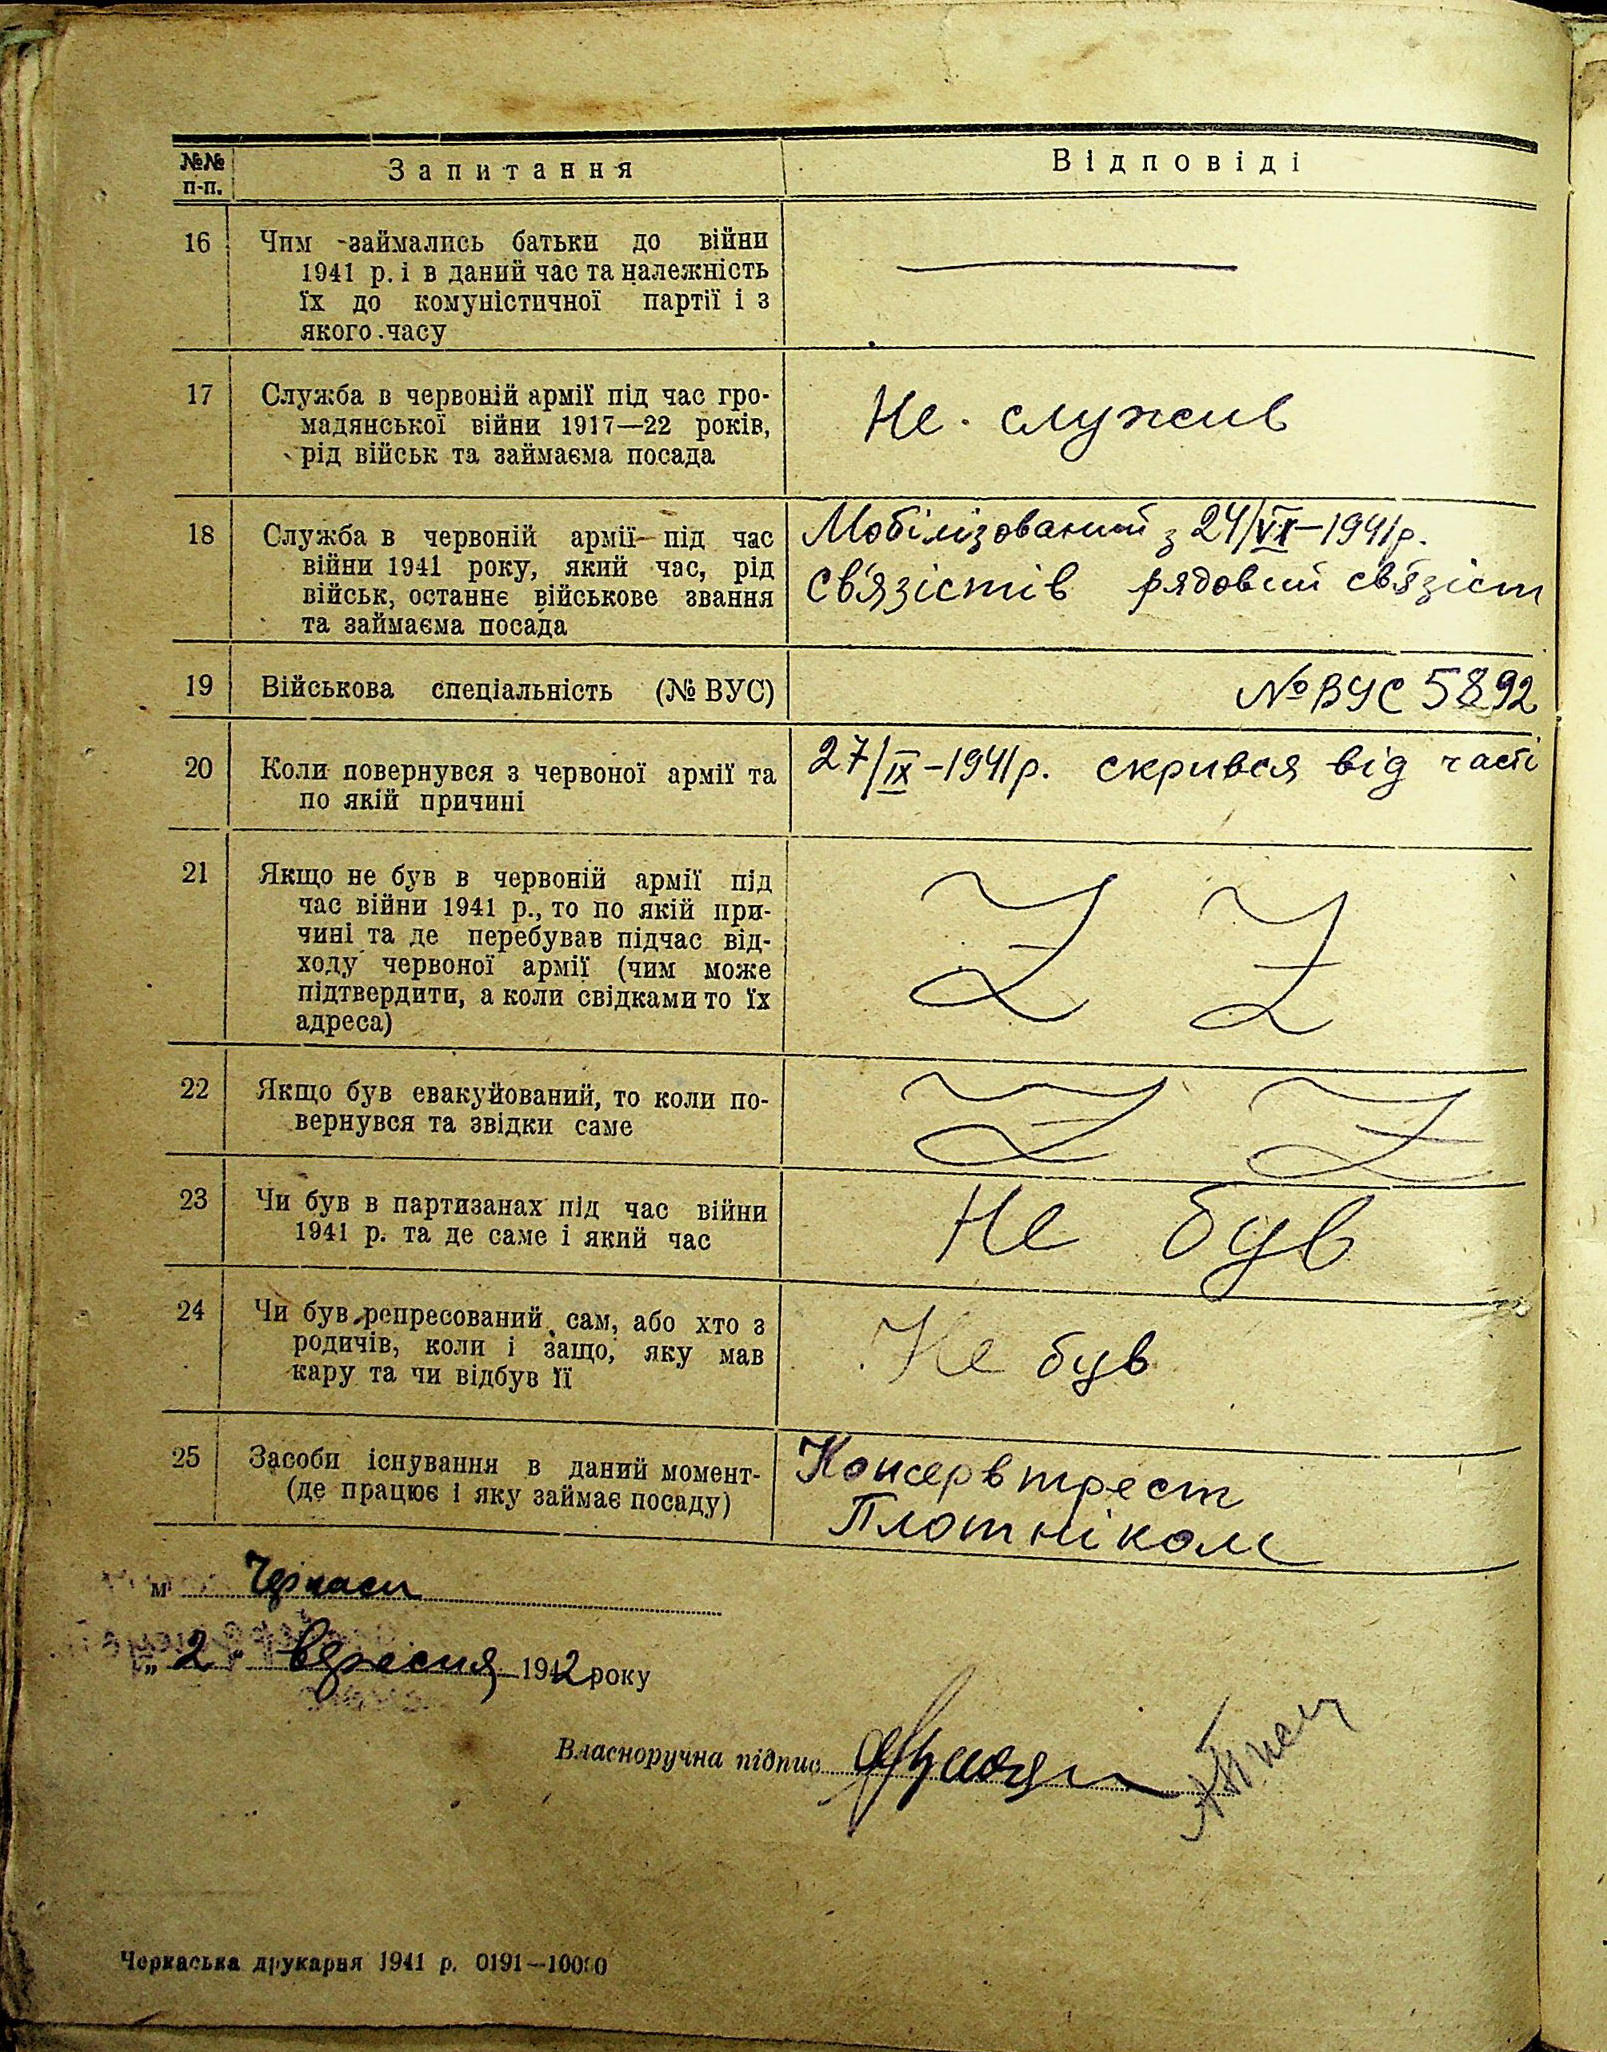 №№ п-п. Запитання Відповіді
16 Чим займались батьки до війни
1941 р. і в даний час та належність
їх до комуністичної партії і з
якого часу
17 Служба в червоній армії під час гро-
мадянської війни 1917—22 років,
рід військ та займаєма посада
Не служив
18 Служба в червоній армії під час
війни 1941 року, який час, рід
військ, останнє військове звання
та займаєма посада
Мобілізований з 24/ -1941р.
св'язістів рядовий св'язіст
19 Військова спеціальність (№ ВУС)
№ ВУС 5892
20 Коли повернувся з червоної армії та
по якій причині
27/IX-1941р. скрився від часті
21 Якщо не був в червоній армії під
час війни 1941 р., то по якій при-
чині та де перебував підчас від-
ходу червоної армії (чим може
підтвердити, а коли свідками то їх
адреса)
Z Z
22 Якщо був евакуйований, то коли по-
вернувся та звідки саме
Z Z
23 Чи був в партизанах під час війни
1941 р. та де саме і який час
Не був
24 Чи був репресований сам, або хто з
родичів, коли і защо, яку мав
кару та чи відбув її
Не був
25 Засоби існування в даний момент-
(де працює і яку займає посаду)
Консервтрест
Плотніком
м Черкаси
„ 2 " вересня 1942 року
Власноручна підпис
Черкаська друкарня 1941 р. 0191—10000